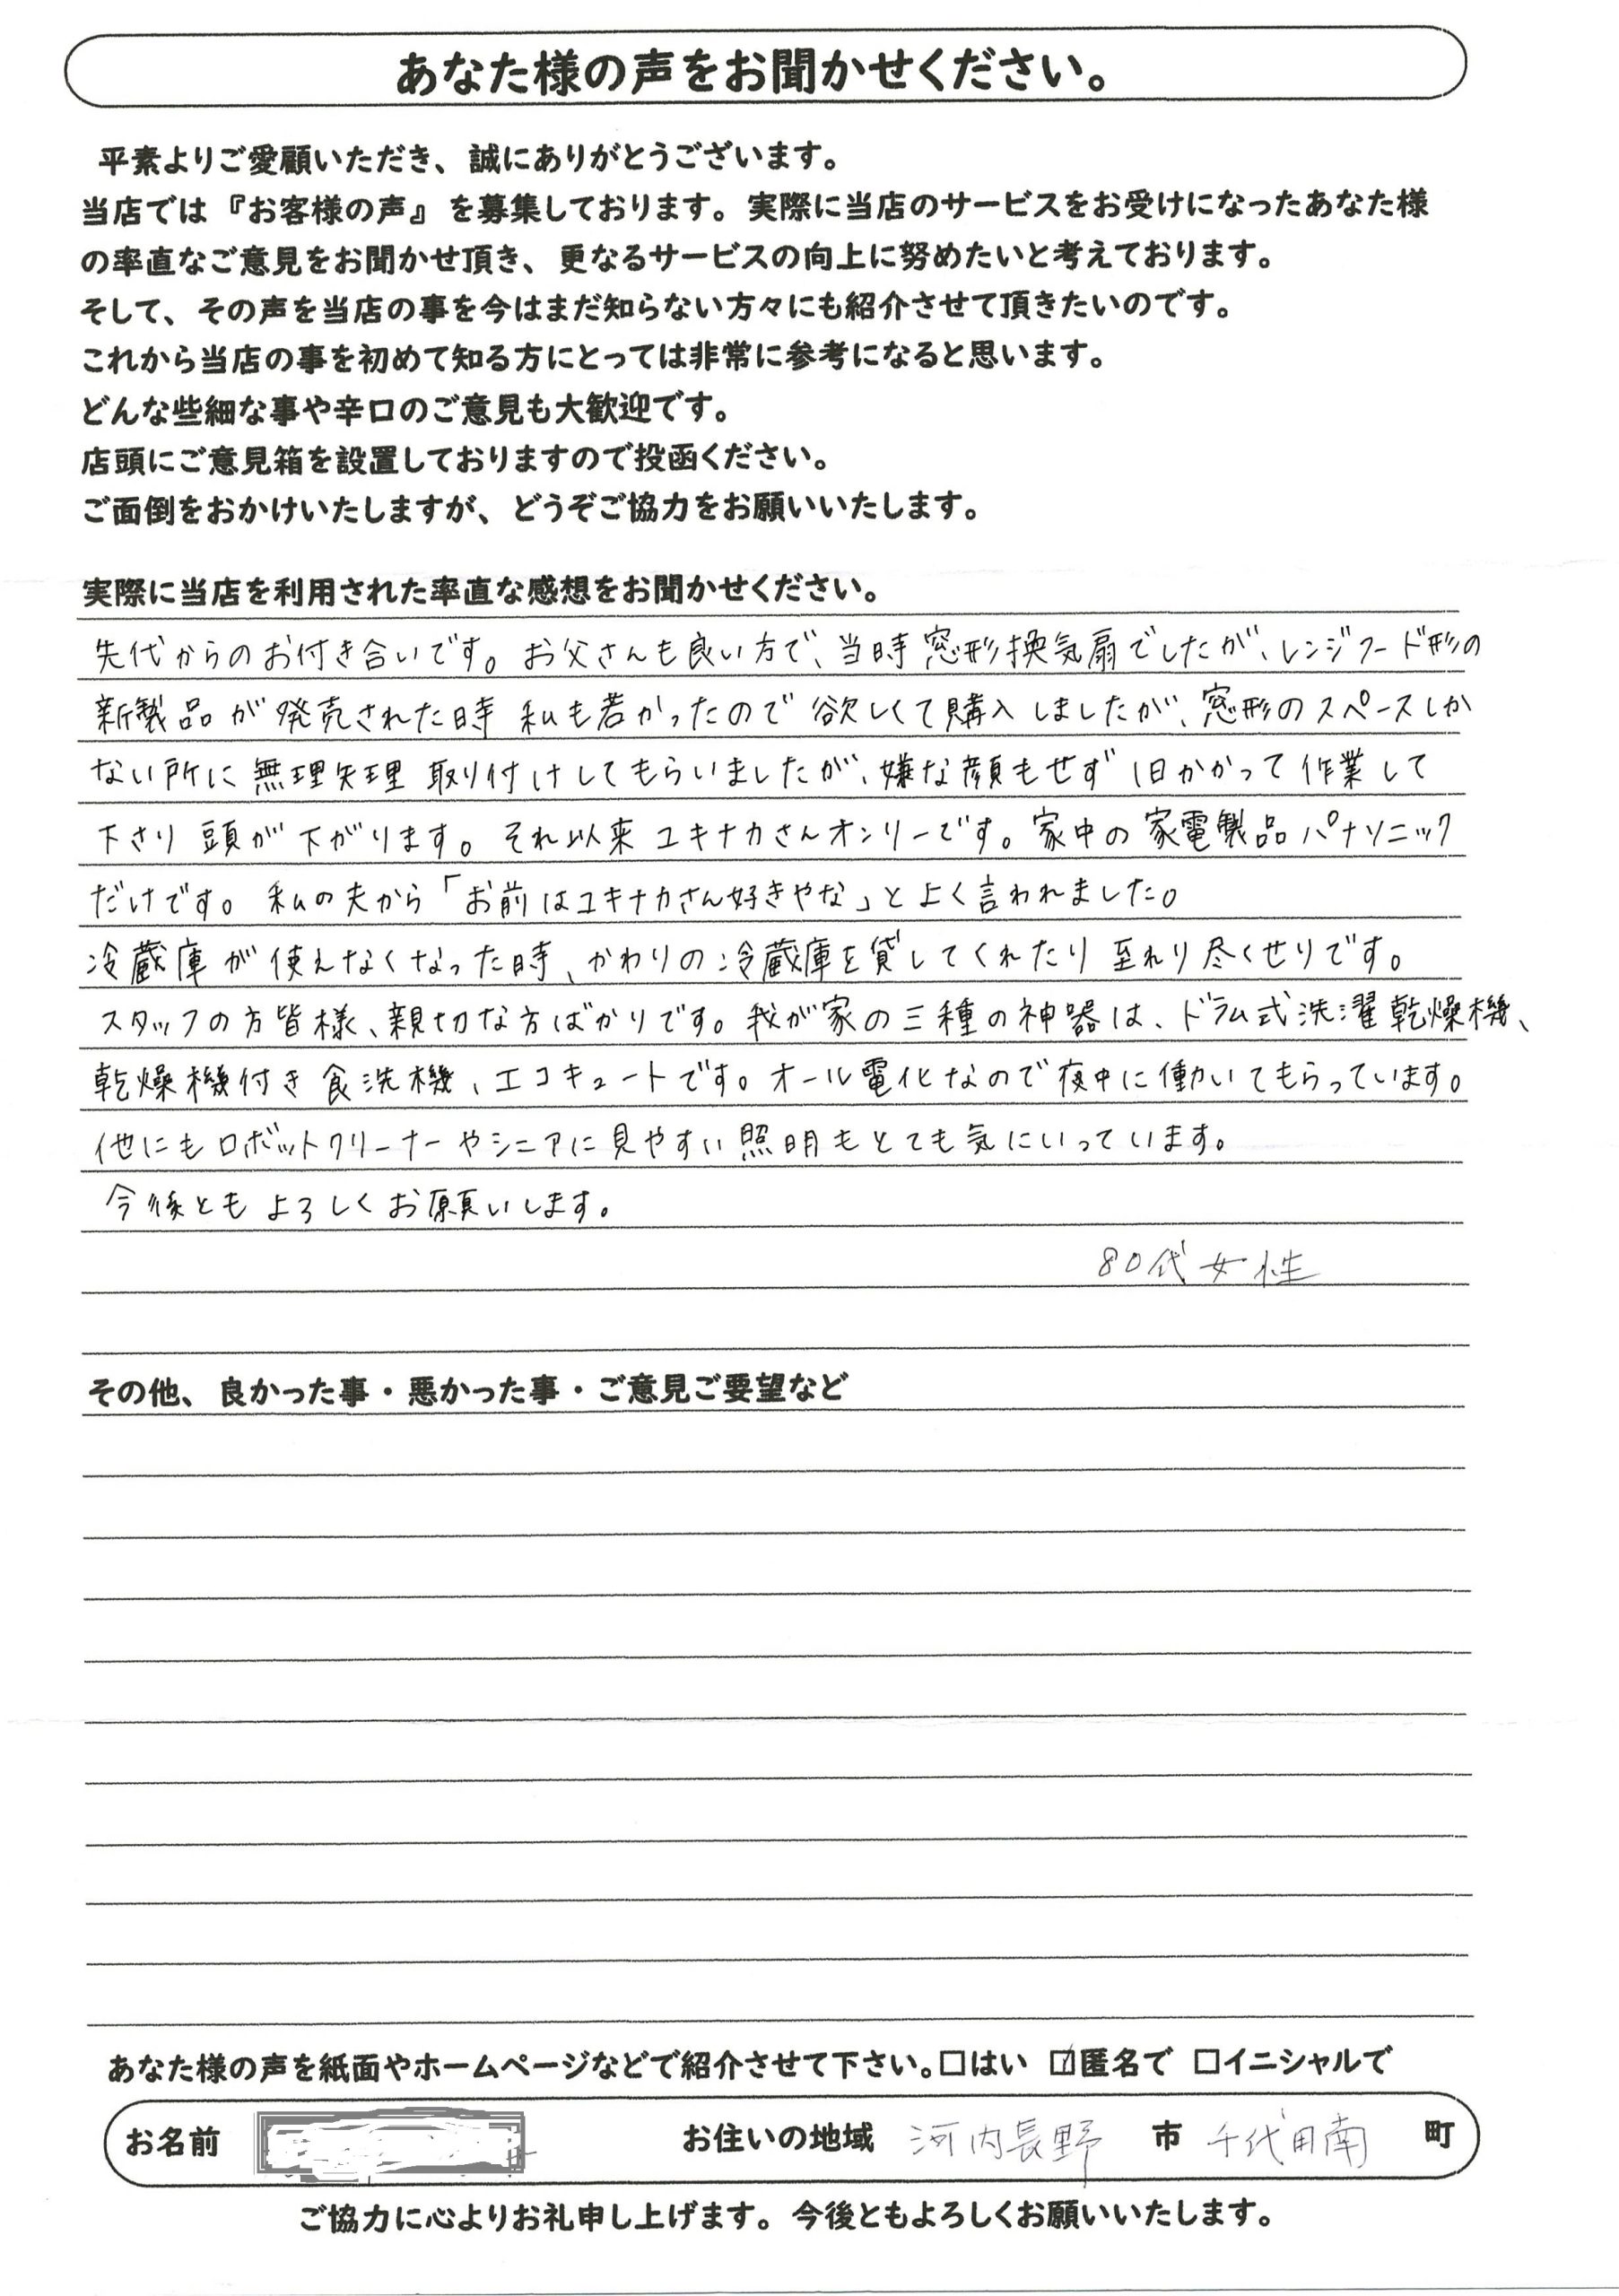 あなた様の声をお聞かせください。
平素よりご愛顧いただき、誠にありがとうございます。
当店では『お客様の声』を募集しております。実際に当店のサービスをお受けになったあなた様
の率直なご意見をお聞かせ頂き、更なるサービスの向上に努めたいと考えております。
そして、その声を当店の事を今はまだ知らない方々にも紹介させて頂きたいのです。
これから当店の事を初めて知る方にとっては非常に参考になると思います。
どんな些細な事や辛口のご意見も大歓迎です。
店頭にご意見箱を設置しておりますので投函ください。
ご面倒をおかけいたしますが、どうぞご協力をお願いいたします。
実際に当店を利用された率直な感想をお聞かせください。
先代からのお付き合いです。お父さんも良い方で、当時窓形換気扇でしたが、レンジフード形の
新製品が発売された時 私も若かったので欲しくて購入しましたが、窓形のスペースしか
ない所に無理矢理 取り付けしてもらいましたが、嫌な顔もせず1日かかって作業して
下さり 頭が下がります。それ以来ユキナカさんオンリーです。家中の家電製品パナソニック
だけです。私の夫から「お前はユキナカさん好きやな」とよく言われました。
冷蔵庫が使えなくなった時、かわりの冷蔵庫を貸してくれたり至れり尽くせりです。
スタッフの方皆様、親切な方ばかりです。我が家の三種の神器は、ドラム式洗濯乾燥機、
乾燥機付き食洗機、エコキュートです。オール電化なので夜中に働いてもらっています。
他にもロボットクリーナーやシニアに見やすい照明もとても気にいっています。
今後ともよろしくお願いします。
80代女性
その他、良かった事・悪かった事・ご意見ご要望など
あなた様の声を紙面やホームページなどで紹介させて下さい。□はい ☑匿名で □イニシャルで
お名前 お住いの地域 河内長野 市 千代田南 町
ご協力に心よりお礼申し上げます。今後ともよろしくお願いいたします。